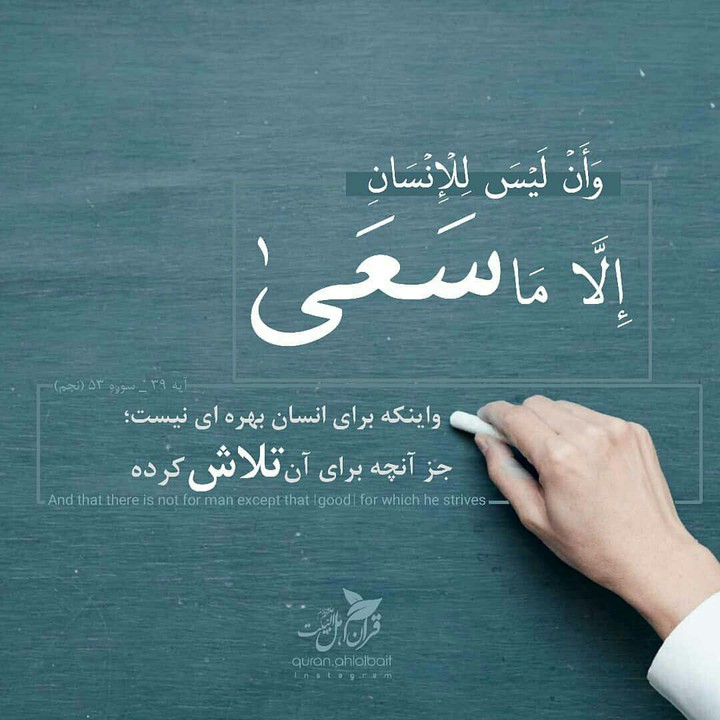 وَأَنْ لَيْسَ لِلْإِنْسَانِ
إِلَّا مَا سَعَىٰ
آیه ۳۹ _ سوره ۵۳ (نجم)
واینکه برای انسان بهره ای نیست؛
جز آنچه برای آن تلاش کرده
And that there is not for man except that |good| for which he strives
قرآن اهل البیت
quran.ahlolbait
Instagram